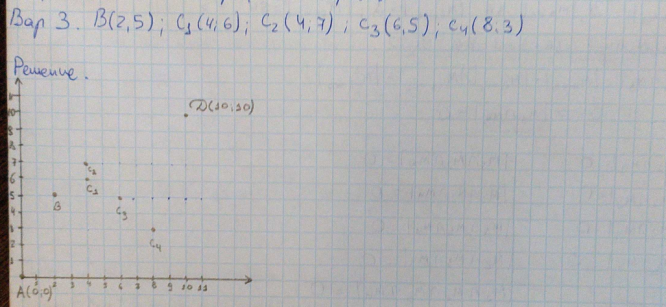 Вар 3. B(2,5); C1(4;6); C2(4,7); C3(6,5); C4(8,3)
Решение.
11
10
D(10;10)
9
8
7
C2
6
C1
5
B
C3
4
3
C4
2
1
A(0;0) 1 2 3 4 5 6 7 8 9 10 11